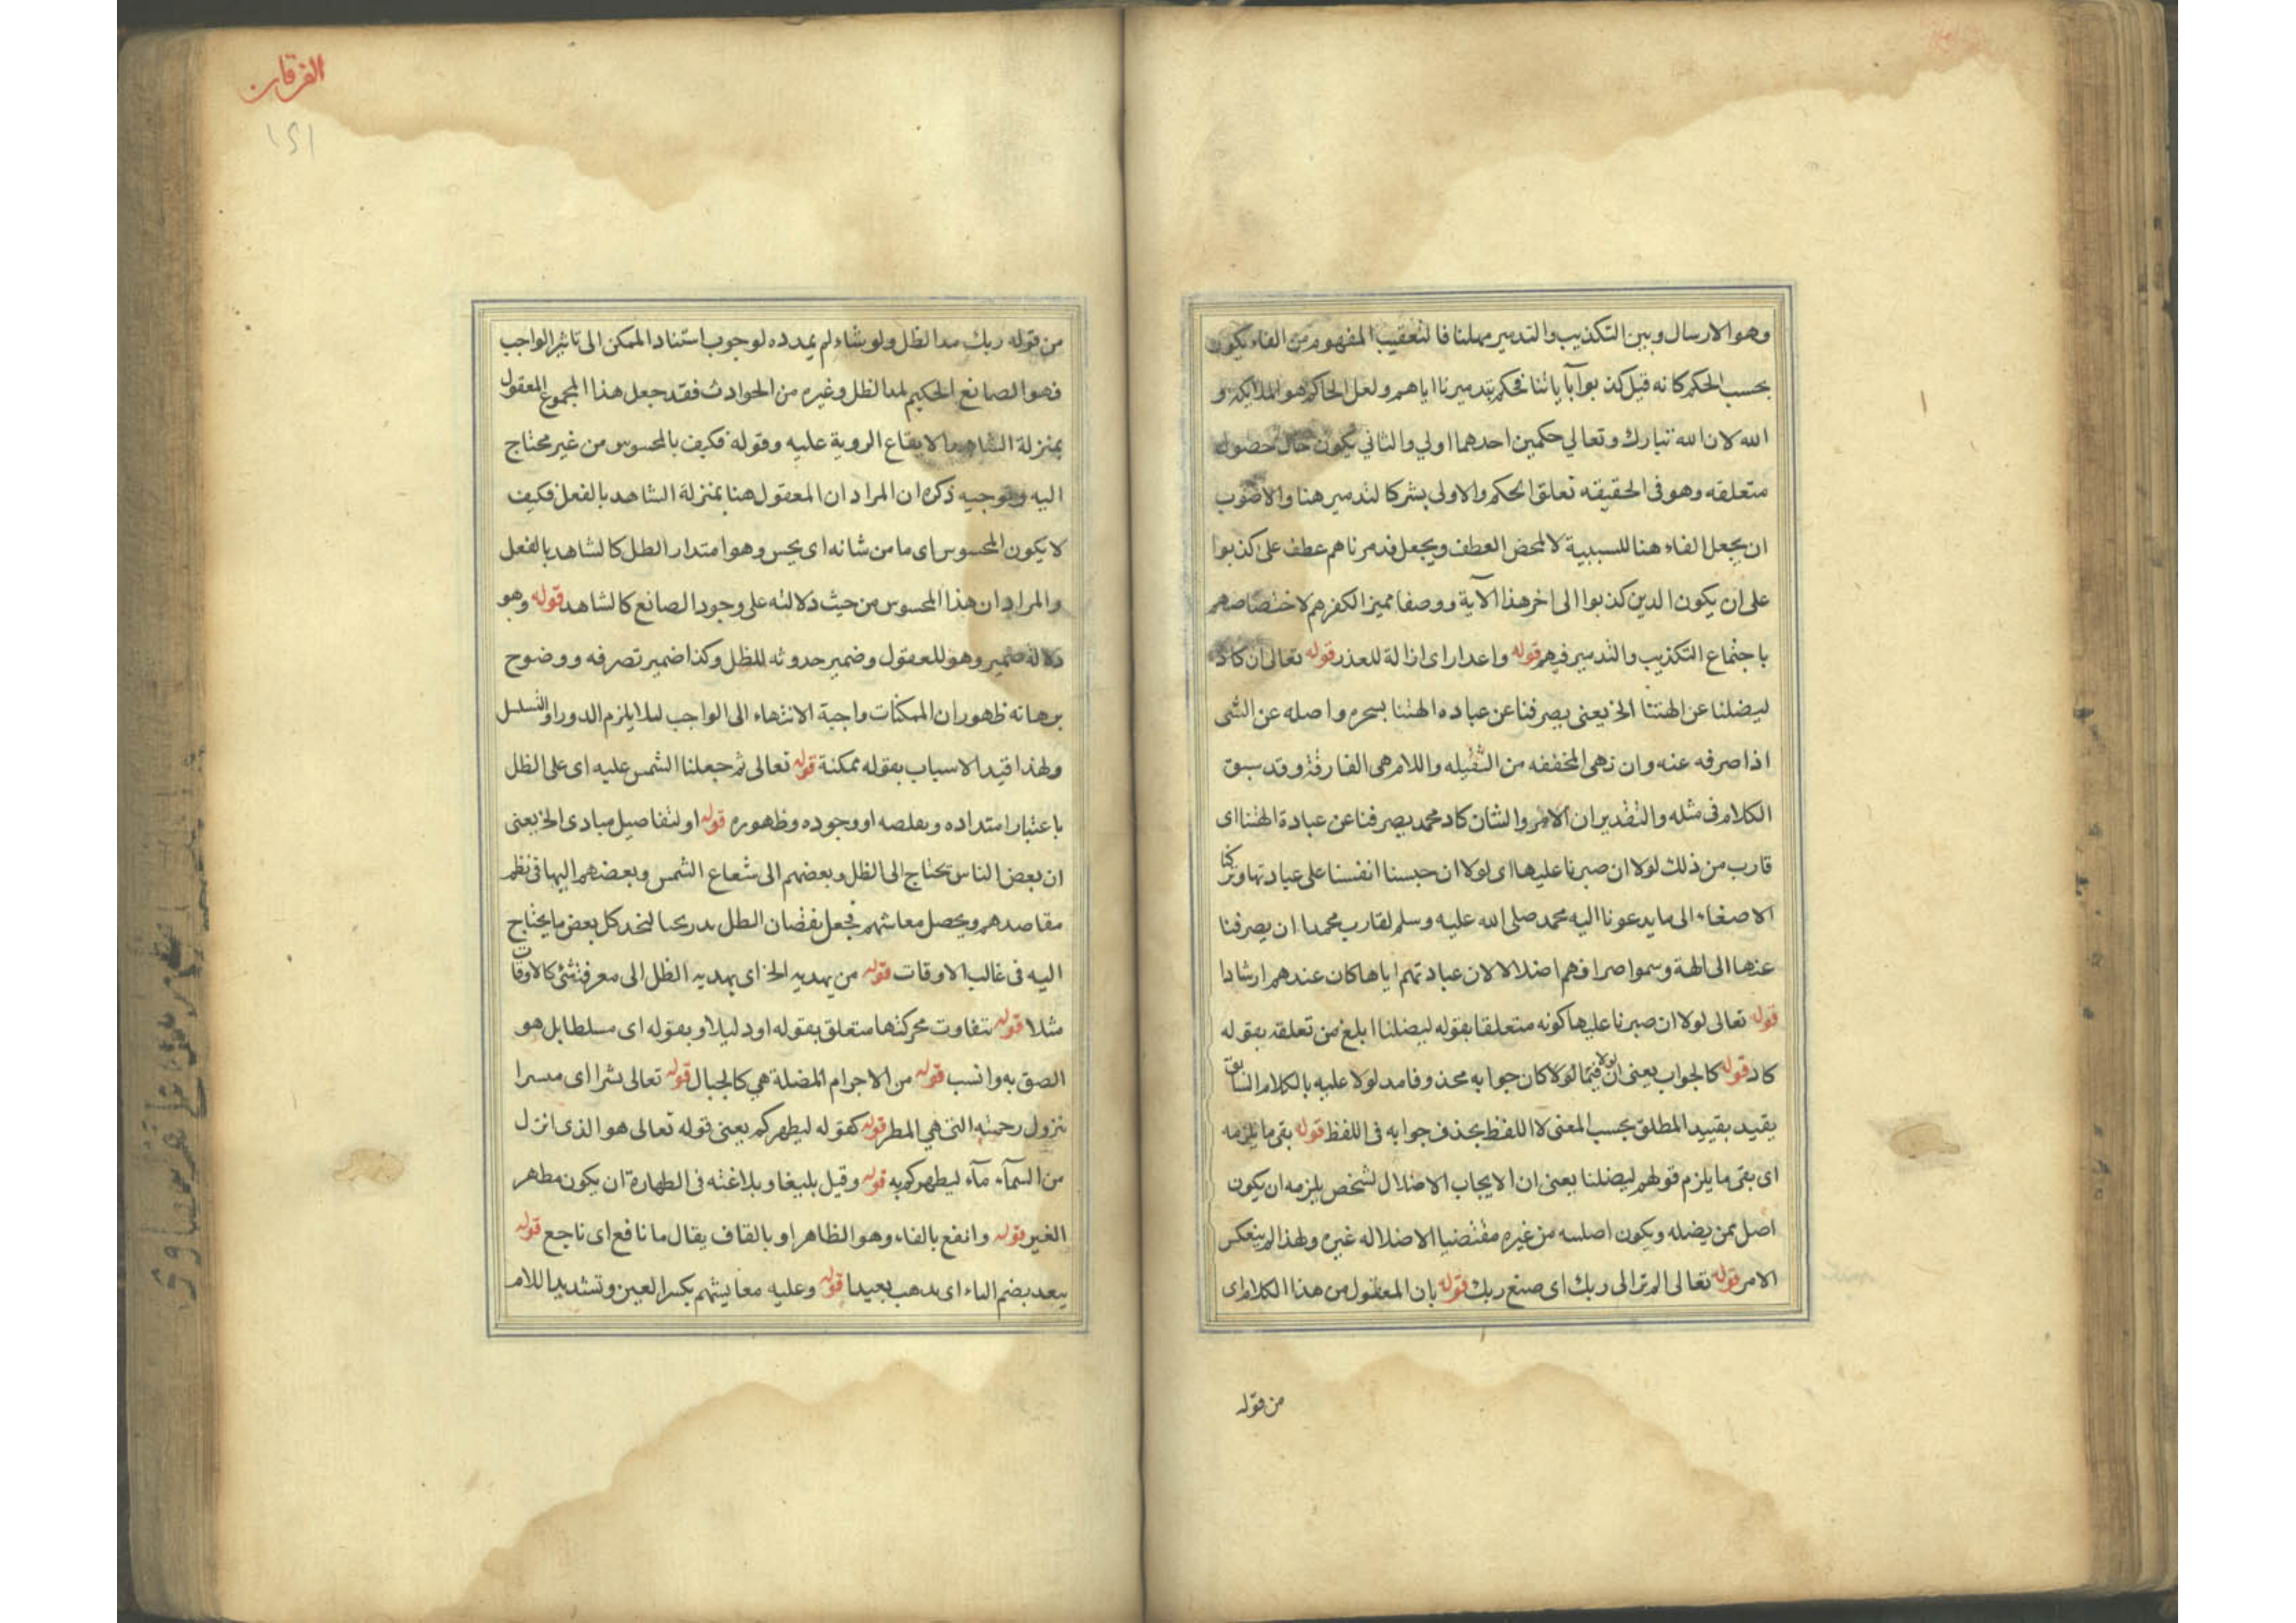 وهو الارسال وبين التكذيب والتدمير مهلنا فا لتعقيب المفهوم من الفاء يكون
بحسب الحكم كانه قيل كذبوا بآياتنا فحكم بتدميرنا اياهم ولعل الحاكم هو الملايكه و
الله لان الله تبارك وتعالي حكمين احدهما اولي والثاني يكون حال حصول
متعلقه وهو فى الحقيقه تعلق الحكم والاولى يشركا لتدمير هنا والاصوب
ان يجعل الفاء هنا للسببية لا لمحض العطف ويجعل فدمرناهم عطف على كذبوا
على ان يكون الدين كذبوا الى اخر هذا الآية ووصفا مميز الكفرهم لاختصاصهم
باجتماع التكذيب والتدمير فيهم قوله واعدارا اى ازالة للعذر قوله تعالى ان كاد
ليضلنا عن الهتنا الخ يعنى يصرفنا عن عباده الهتنا بسحره واصله عن الشى
اذا صرفه عنه وان هى المخففه من الثقيله واللام هى الفارقة وقد سبق
الكلام فى مثله والتقدير ان الامر والشان كاد محمد يصرفنا عن عبادة الهتنا اى
قارب من ذلك لولا ان صبرنا عليها اى لولا ان حبسنا انفسنا على عبادتها وتركنا
الاصغاء الى ما يدعونا اليه محمد صلى الله عليه وسلم لقارب محمدا ان يصرفنا
عنها الى الهة وسموا صرافهم اضلالا لان عبادتهم اياها كان عندهم ارشادا
قوله تعالى لولا ان صبرنا عليها كونه متعلقا بقوله ليضلنا ابلغ من تعلقه بقوله
كاد قوله كالجواب يعنى ان لولا فيما لولا كان جوابه محذوفا مدلولا عليه بالكلام السابق
يقيد بقييد المطلق بحسب المعنى لا اللفظ بحذف جوابه فى اللفظ قوله بقى ما يلزمه
اى بقى ما يلزم قولهم ليضلنا يعنى ان الايجاب الاضلال لشخص يلزمه ان يكون
اضل ممن يضله ويكون اصلسه من غيره مقتضيا الاضلاله غيره ولهذا لم ينعكس
الامر قوله تعالى الم تر الى ربك اى صنع ربك قوله بان المعقول من هذا الكلام اى
من قوله
الفرقان
١٤١
من قوله ربك مد الظل ولو شاء لم يمدده لوجوب استناد الممكن الى تاثير الواجب
فهو الصانع الحكيم لمد الظل وغيره من الحوادث فقد جعل هذا المجموع المعقول
بمنزلة الشاهد بالايقاع الروية عليه وقوله فكيف بالمحسوس من غير محتاج
اليه وتوجيه ذكره ان المراد ان المعقول هنا بمنزلة الشاهد بالفعل فكيف
لا يكون المحسوس اى ما من شانه اى يحس وهو امتدار الظل كالشاهد بالفعل
والمراد ان هذا المحسوس من حيث دلالته على وجود الصانع كالشاهد قوله وهو
دلالة ضمير وهو للمعقول وضمير حدوثه للظل وكذا ضمير تصرفه ووضوح
برهانه ظهور ان الممكنات واجبة الانتهاء الى الواجب لىلا يلزم الدور او التسلسل
ولهذا قيد الاسباب بقوله ممكنة قوله تعالى ثم جعلنا الشمس عليه اى على الظل
باعتبار امتداده وبقلصه او وجوده وظهوره قوله او لتفاصيل مبادى الخ يعنى
ان بعض الناس تحتاج الى الظل وبعضهم الى شعاع الشمس وبعضهم اليها فى نظم
مقاصدهم ويحصل معاشهم فجعل نقضان الظل بدريحا لتحد كل بعض ما يحتاج
اليه فى غالب الاوقات قوله من يهديه الخ اى يهديه الظل الى معرفة شئ كالاوقات
مثلا قوله بتفاوت محركتها متعلق بقوله اودليلا وبقوله اى مسلطا بل هو
الصق به وانسب قوله من الاجرام المضلة هي كالجبال قوله تعالى بشرا اى مبسرا
بنزول رحمته التى هي المطر قوله كقوله ليطهركم يعنى قوله تعالى هو الذى انزل
من السمآء مآء ليطهركم به قوله وقيل بليغا وبلاغته فى الطهارة ان يكون مطهر
الغير قوله وانفع بالفاء وهو الظاهر او بالقاف يقال ما نافع اى ناجع قوله
يبعد بضم الياء اى يدهب بعيدا قوله وعليه معايشهم بكسر العين وتشديد اللام